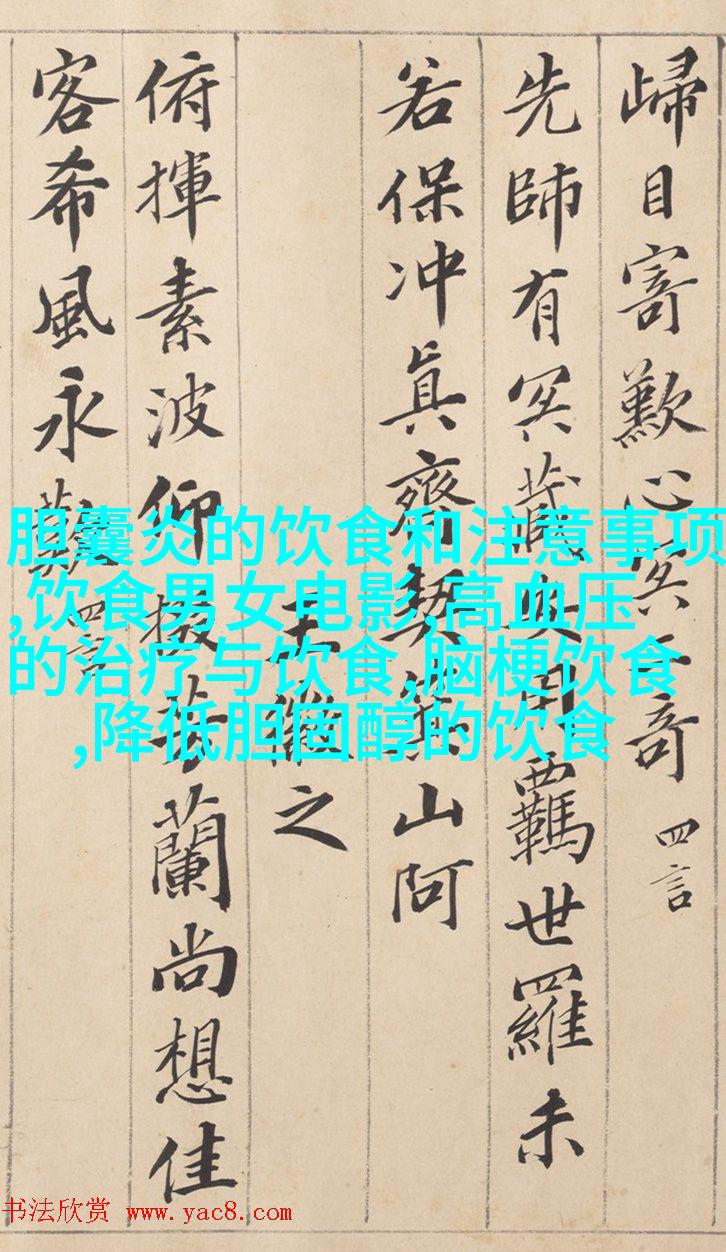 歸目寄歎心冥二奇 四言
先師有冥藏安用羈世羅未
若保冲真齊契箕山阿
王徽之
俯揮素波仰掇芳蘭尚想佳
客希風永歎 四言
胆囊炎的饮食和注意事项
,饮食男女电影,高血压
的治疗与饮食,脑梗饮食
,降低胆固醇的饮食
书法欣赏 www.yac8.com